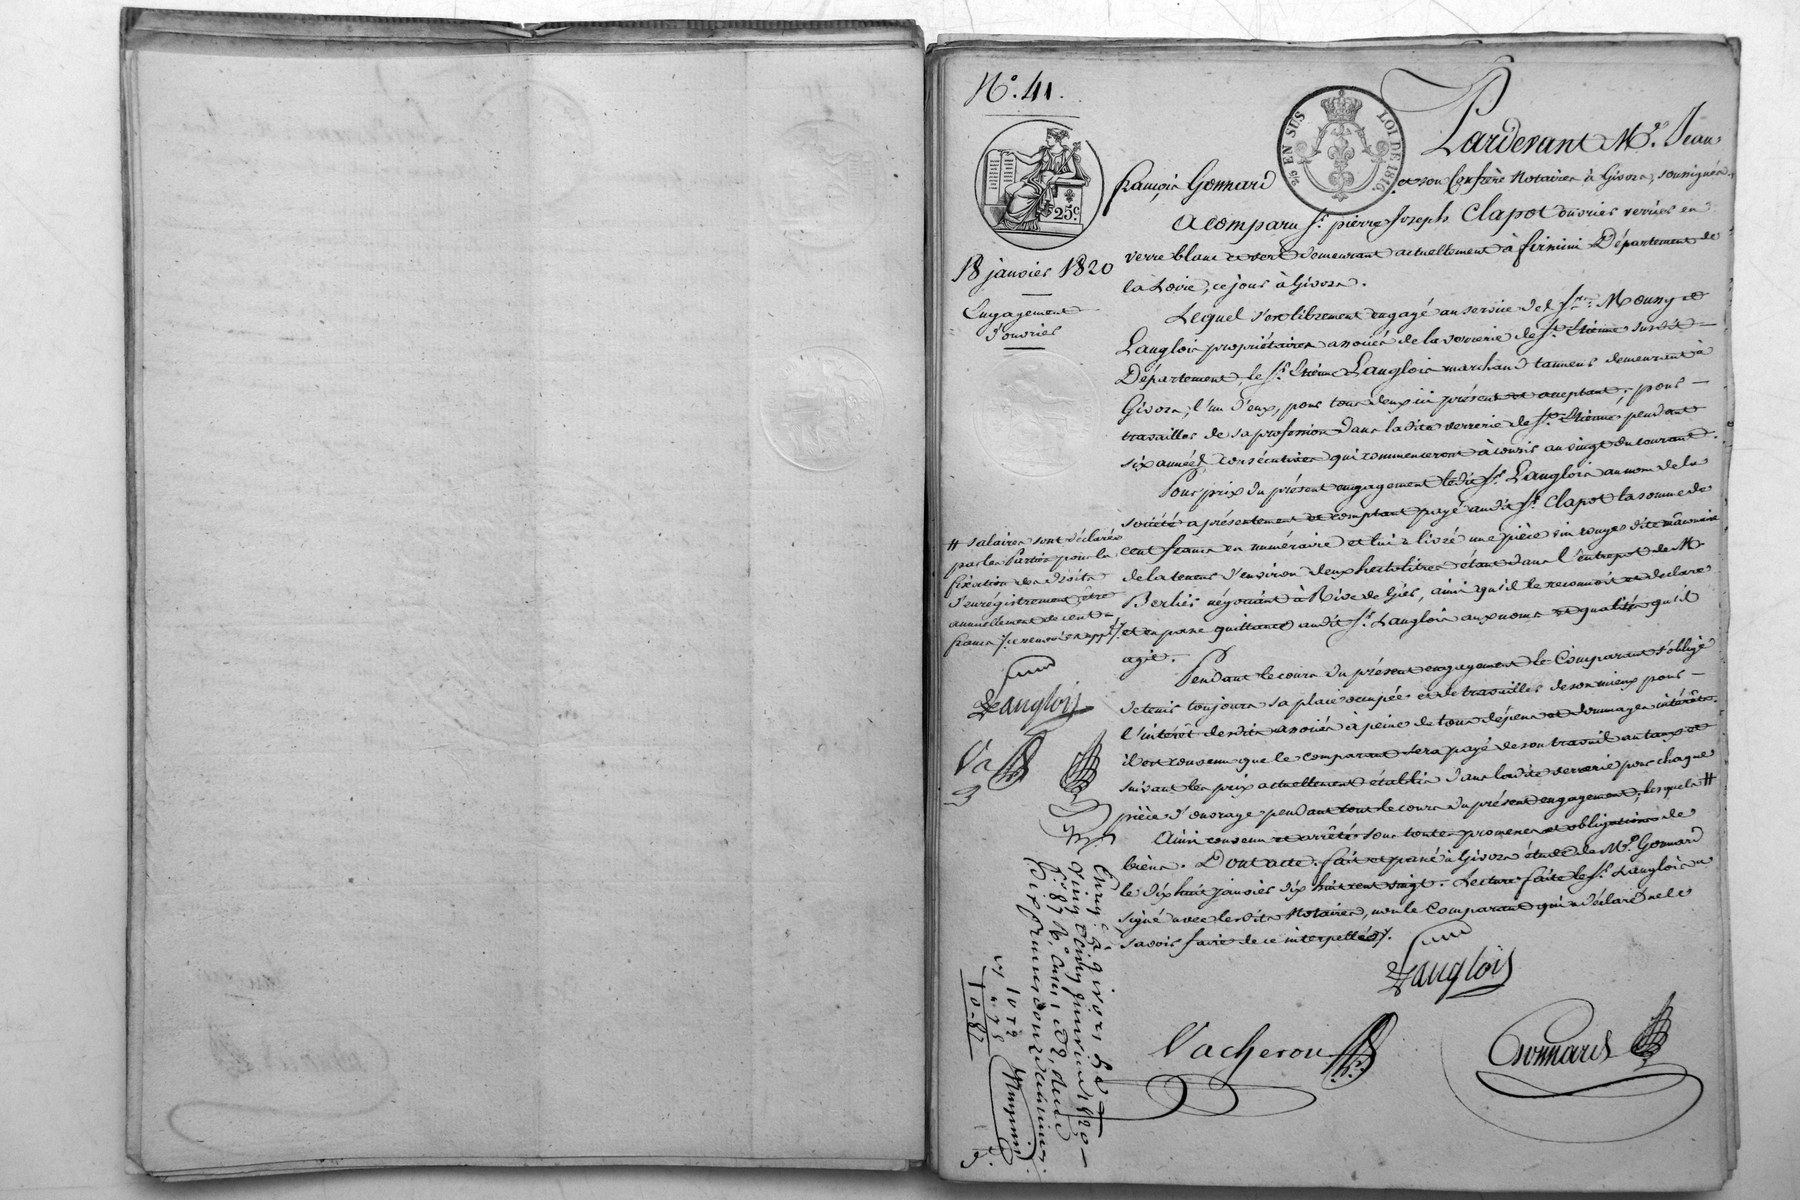 N.° 41.
2/0 EN SUS LOI DE 1816.
25c.
18 janvier 1820
Engagement
d'ouvrier
Pardevant M.e Jean
françois Gonnard et son Confrère Notaires à Givors, soussignés.
A comparu S.r pierre Joseph Clapot ouvrier verrier en
verre blanc et vert demeurant actuellement à firmini Département de
la Loire, ce jour à Givors.
Lequel s'est librement engagé au service des S.rs Mouny et
Langlois propriétaires associés de la verrerie de S.t Etienne susdit
Département, le S.r Etienne Langlois marchand tanneur demeurant à
Givors, l'un d'eux, pour tous deux ici présent et acceptant, pour
travailler de sa profession dans ladite verrerie de S.t Etienne pendant
six années consécutives qui commenceront à courir au vingt du courant.
Pour prix du présent engagement ledit S.r Langlois au nom de la
société a présentement et comptant payé audit S.r Clapot la somme de
cent francs en numéraire et lui a livré une pièce vin rouge dite mâconnaise
de la teneur d'environ deux hectolitres étant dans l'entrepot de M.
Berlier négociant à Rive de Gier, ainsi qu'il le reconnoit et declare
et en passe quittance audit S.r Langlois aux noms et qualités qu'il
agit.
Pendant le cours du présent engagement le Comparant s'oblige
de tenir toujours sa place occupée et de travailler de son mieux pour
l'intérêt desdits associés à peine de tous dépens et dommages intérêts.
il est convenu que le comparant sera payé de son travail au taux et
suivant les prix actuellement établis dans ladite verrerie pour chaque
pièce d'ouvrage pendant tout le cours du présent engagement, lesquels #
Ainsi convenu et arrêté sous toutes promesses et obligations de
biens. Dont acte. fait et passé à Givors étude de M.e Gonnard
le dix huit janvier dix huit cent vingt. Lecture faite le S.r Langlois a
signé avec lesdits Notaires, non le Comparant qui a déclaré ne le
savoir faire de ce interpellé.
# salaires sont déclarés
par les Parties pour la
fixation des droits
d'enregistrement, être
annuellement de cent
francs
Langlois
Va
Langlois
Vacheron
Gonnard
Enreg.é à givors le
vingt janvier 1820
f.° 87 R.° Case
dix francs